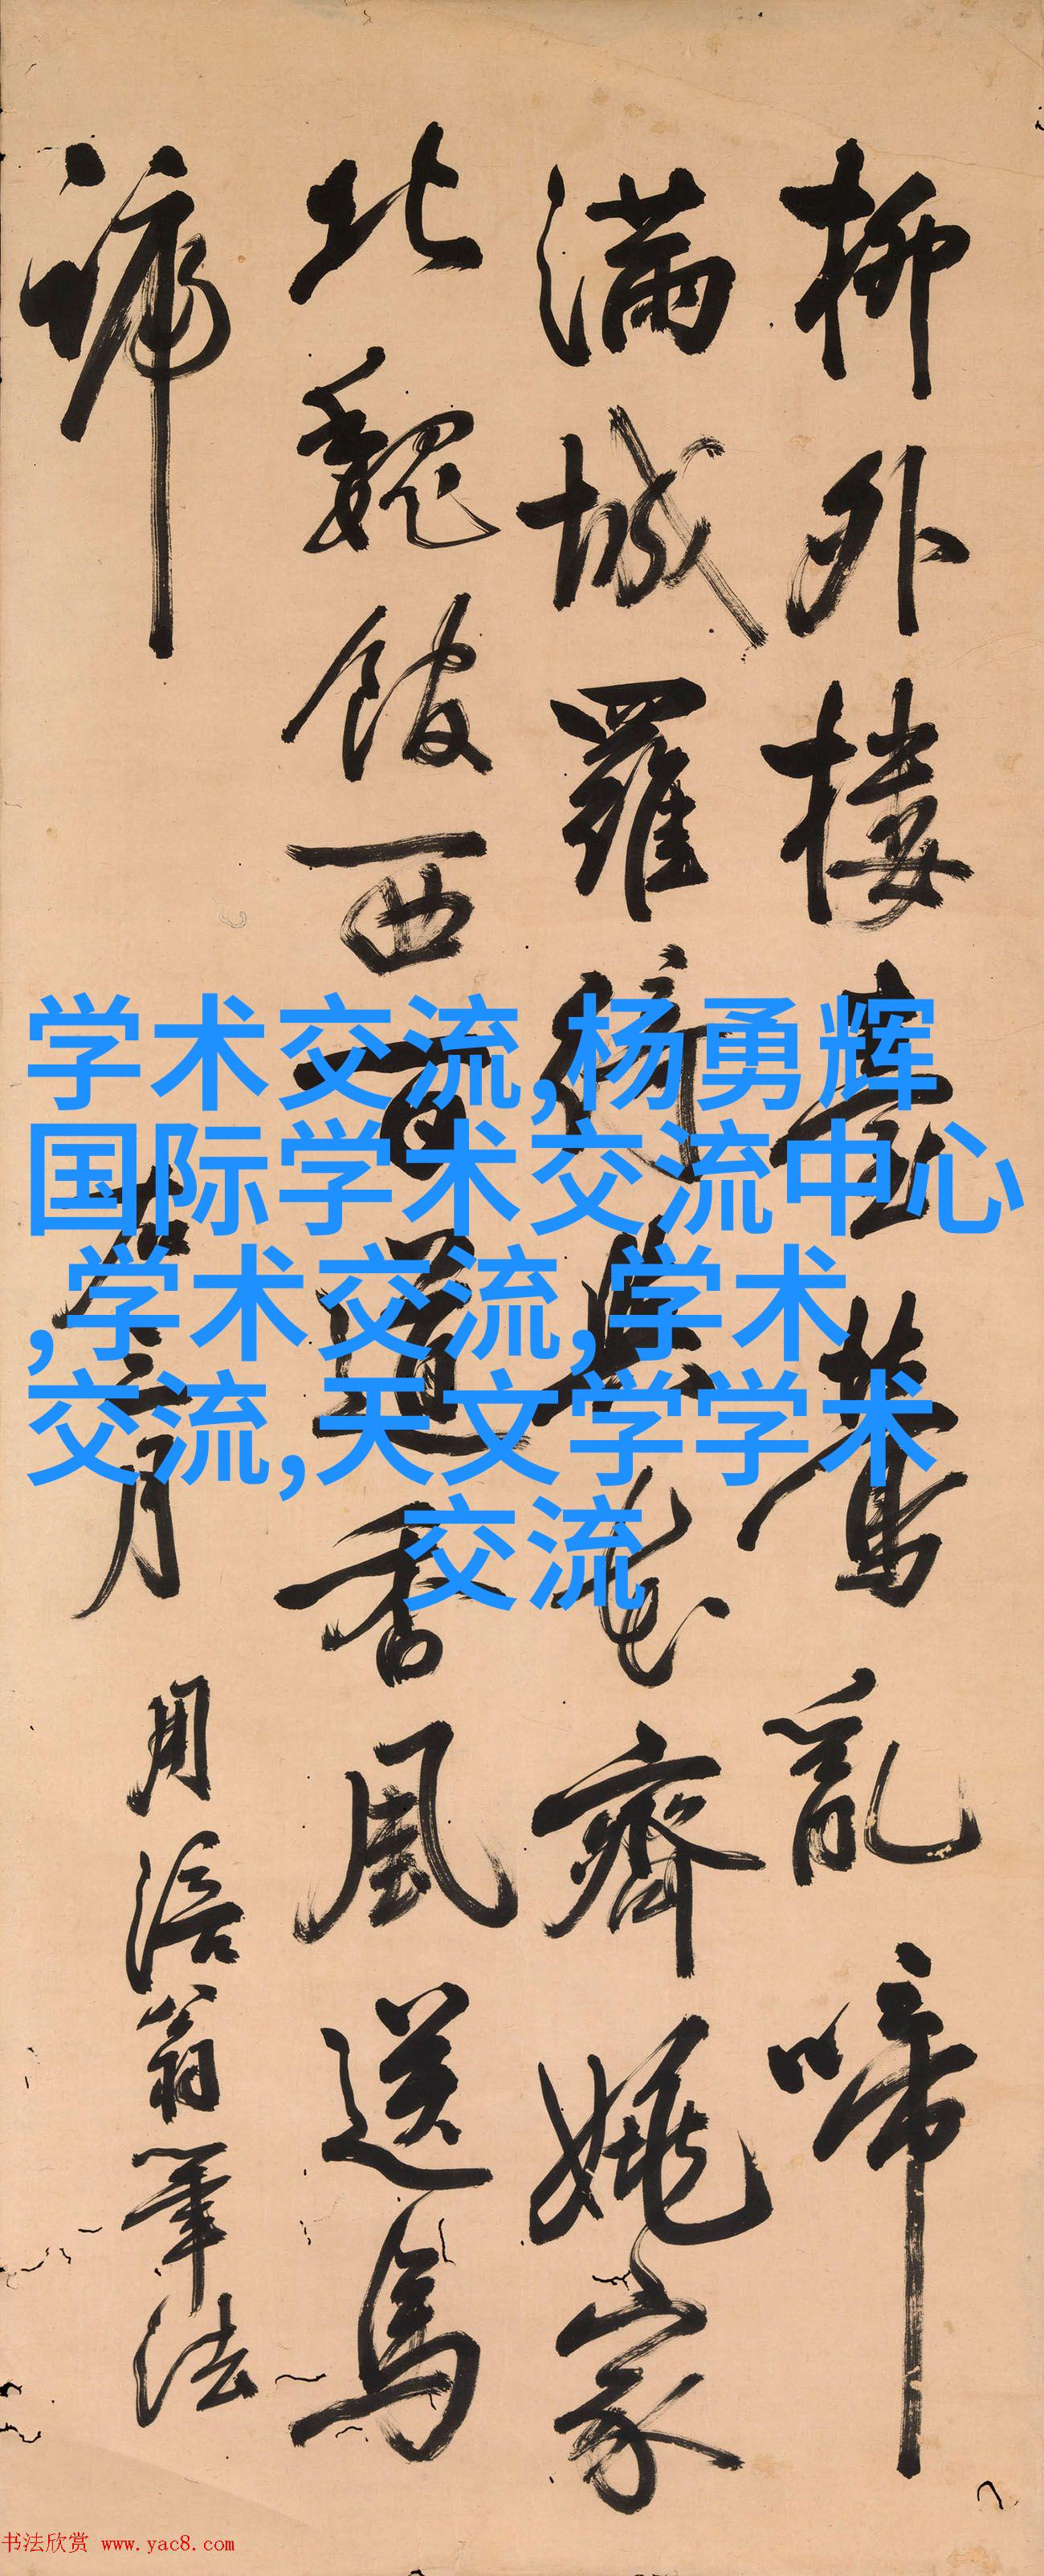 柳外樓臺鶯亂啼
滿城羅與花齊姚家
北魏西百道香風送馬
蹄
右二月
用涪翁筆法
学术交流,杨勇辉
国际学术交流中心
,学术交流,学术
交流,天文学学术
交流
书法欣赏 www.yac8.com